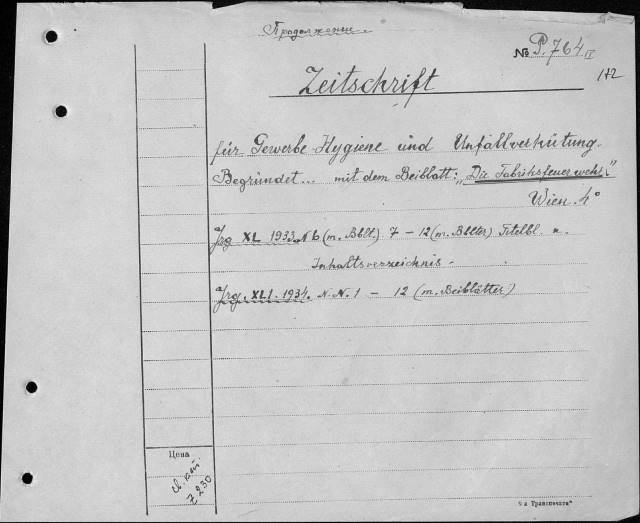 Продолжение.
№ P.764 IV
112
Zeitschrift
für Gewerbe-Hygiene und Unfallverhütung.
Begründet... mit dem Beiblatt: „Die Fabriksfeuerwehr."
Wien. 4°
Jrg XL 1933. N 6 (m. Bblt.) 7 - 12 (m. Bblter) Titelbl. u.
Inhaltsverzeichnis -
Jrg. XLI. 1934. N.N. 1 - 12 (m. Beiblätter)
Цена
Z 230
Транспечати"